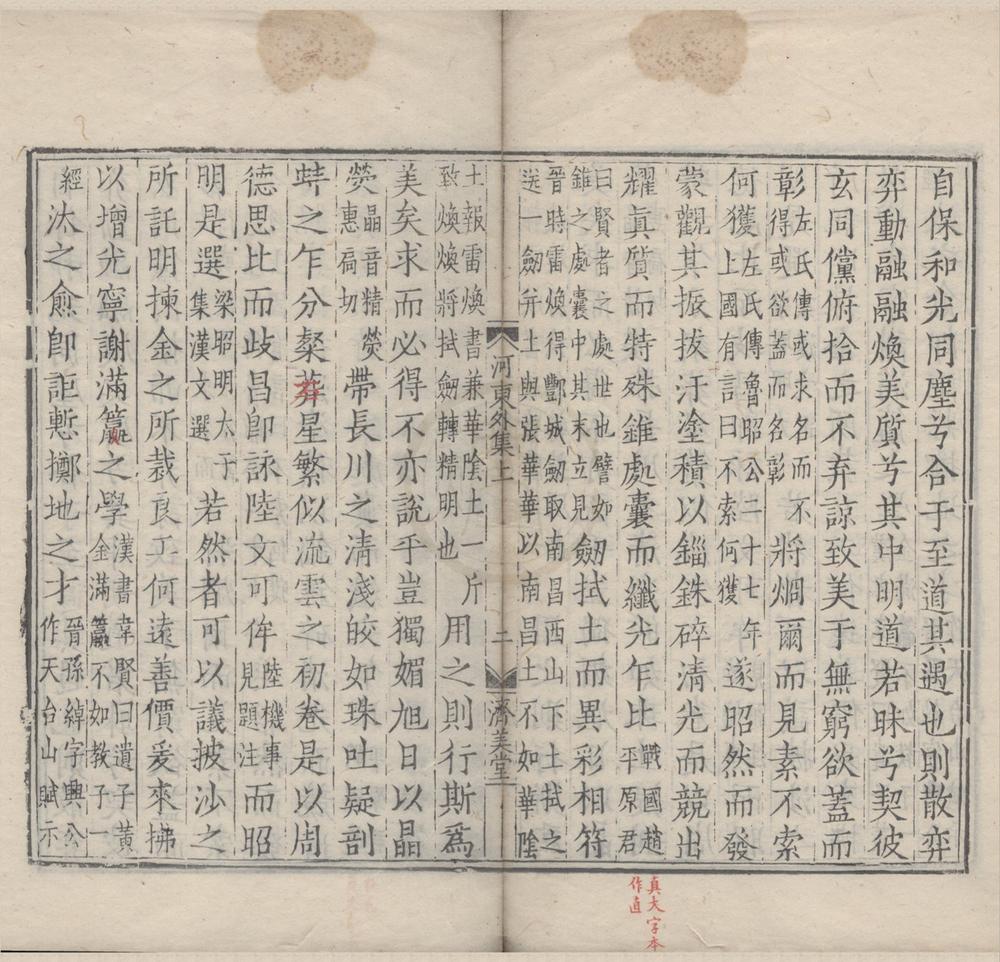 自保和光同塵兮合于至道其遇也則散弈
弈動融融煥美質兮其中明道若昧兮契彼
玄同儻俯拾而不弃諒致美于無窮欲蓋而
彰左氏傳或求名而不得或欲蓋而名彰將烱爾而見素不索
何獲左氏傳魯昭公二十七年上國有言曰不索何獲遂昭然而發
蒙觀其振拔汙塗積以錙銖碎清光而競出
耀眞質而特殊錐處囊而纖光乍比戰國趙平原君
曰賢者之處世也譬如錐之處囊中其末立見劒拭土而異彩相符
晉時雷煥得酆城劒取南昌西山下土拭之送一劒幷土與張華華以南昌土不如華陰
河東外集上
二
濟美堂
土報雷煥書兼華陰土一斤致煥煥將拭劒轉精明也用之則行斯爲
美矣求而必得不亦說乎豈獨媚旭日以晶
熒晶音精熒惠扃切帶長川之清淺皎如珠吐疑剖
蚌之乍分粲莽星繁似流雲之初卷是以周
德思比而歧昌卽詠陸文可侔陸機事見題注而昭
明是選梁昭明太子集漢文選若然者可以議披沙之
所託明揀金之所裁良工何遠善價爰來拂
以增光寧謝滿籯之學漢書韋賢曰遺子黃金滿籯不如教子一
經汰之愈卽詎慙擲地之才晉孫綽字興公作天台山賦示
真大字本
作直